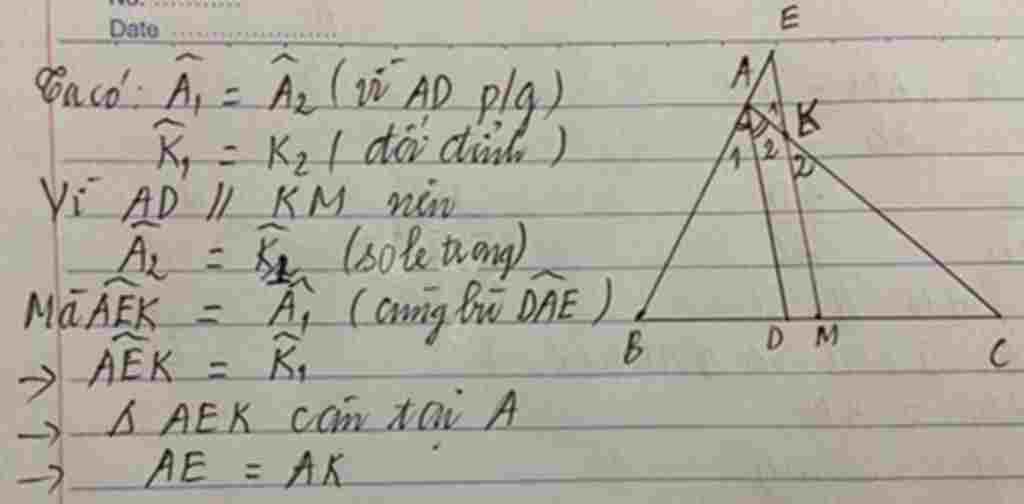 No. ............
Date ............
Ta có: Â₁ = Â₂ (vì AD p/g)
K̂₁ = K₂ ( đối đỉnh )
Vì AD // KM nên
Â₂ = K̂₁ (sole trong)
Mà ÂEK = Â₁ (cùng bù DÂE )
→ ÂEK = K̂₁
→ Δ AEK cân tại A
→ AE = AK
E
A
1 K
1 2 2
B D M C